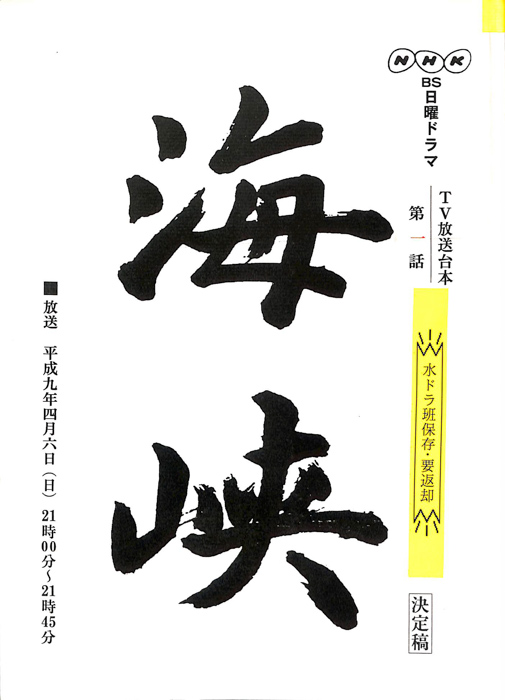 NHK
BS日曜ドラマ
TV放送台本
第一話
水ドラ班保存・要返却
決定稿
海峡
■放送 平成九年四月六日(日) 21時00分〜21時45分